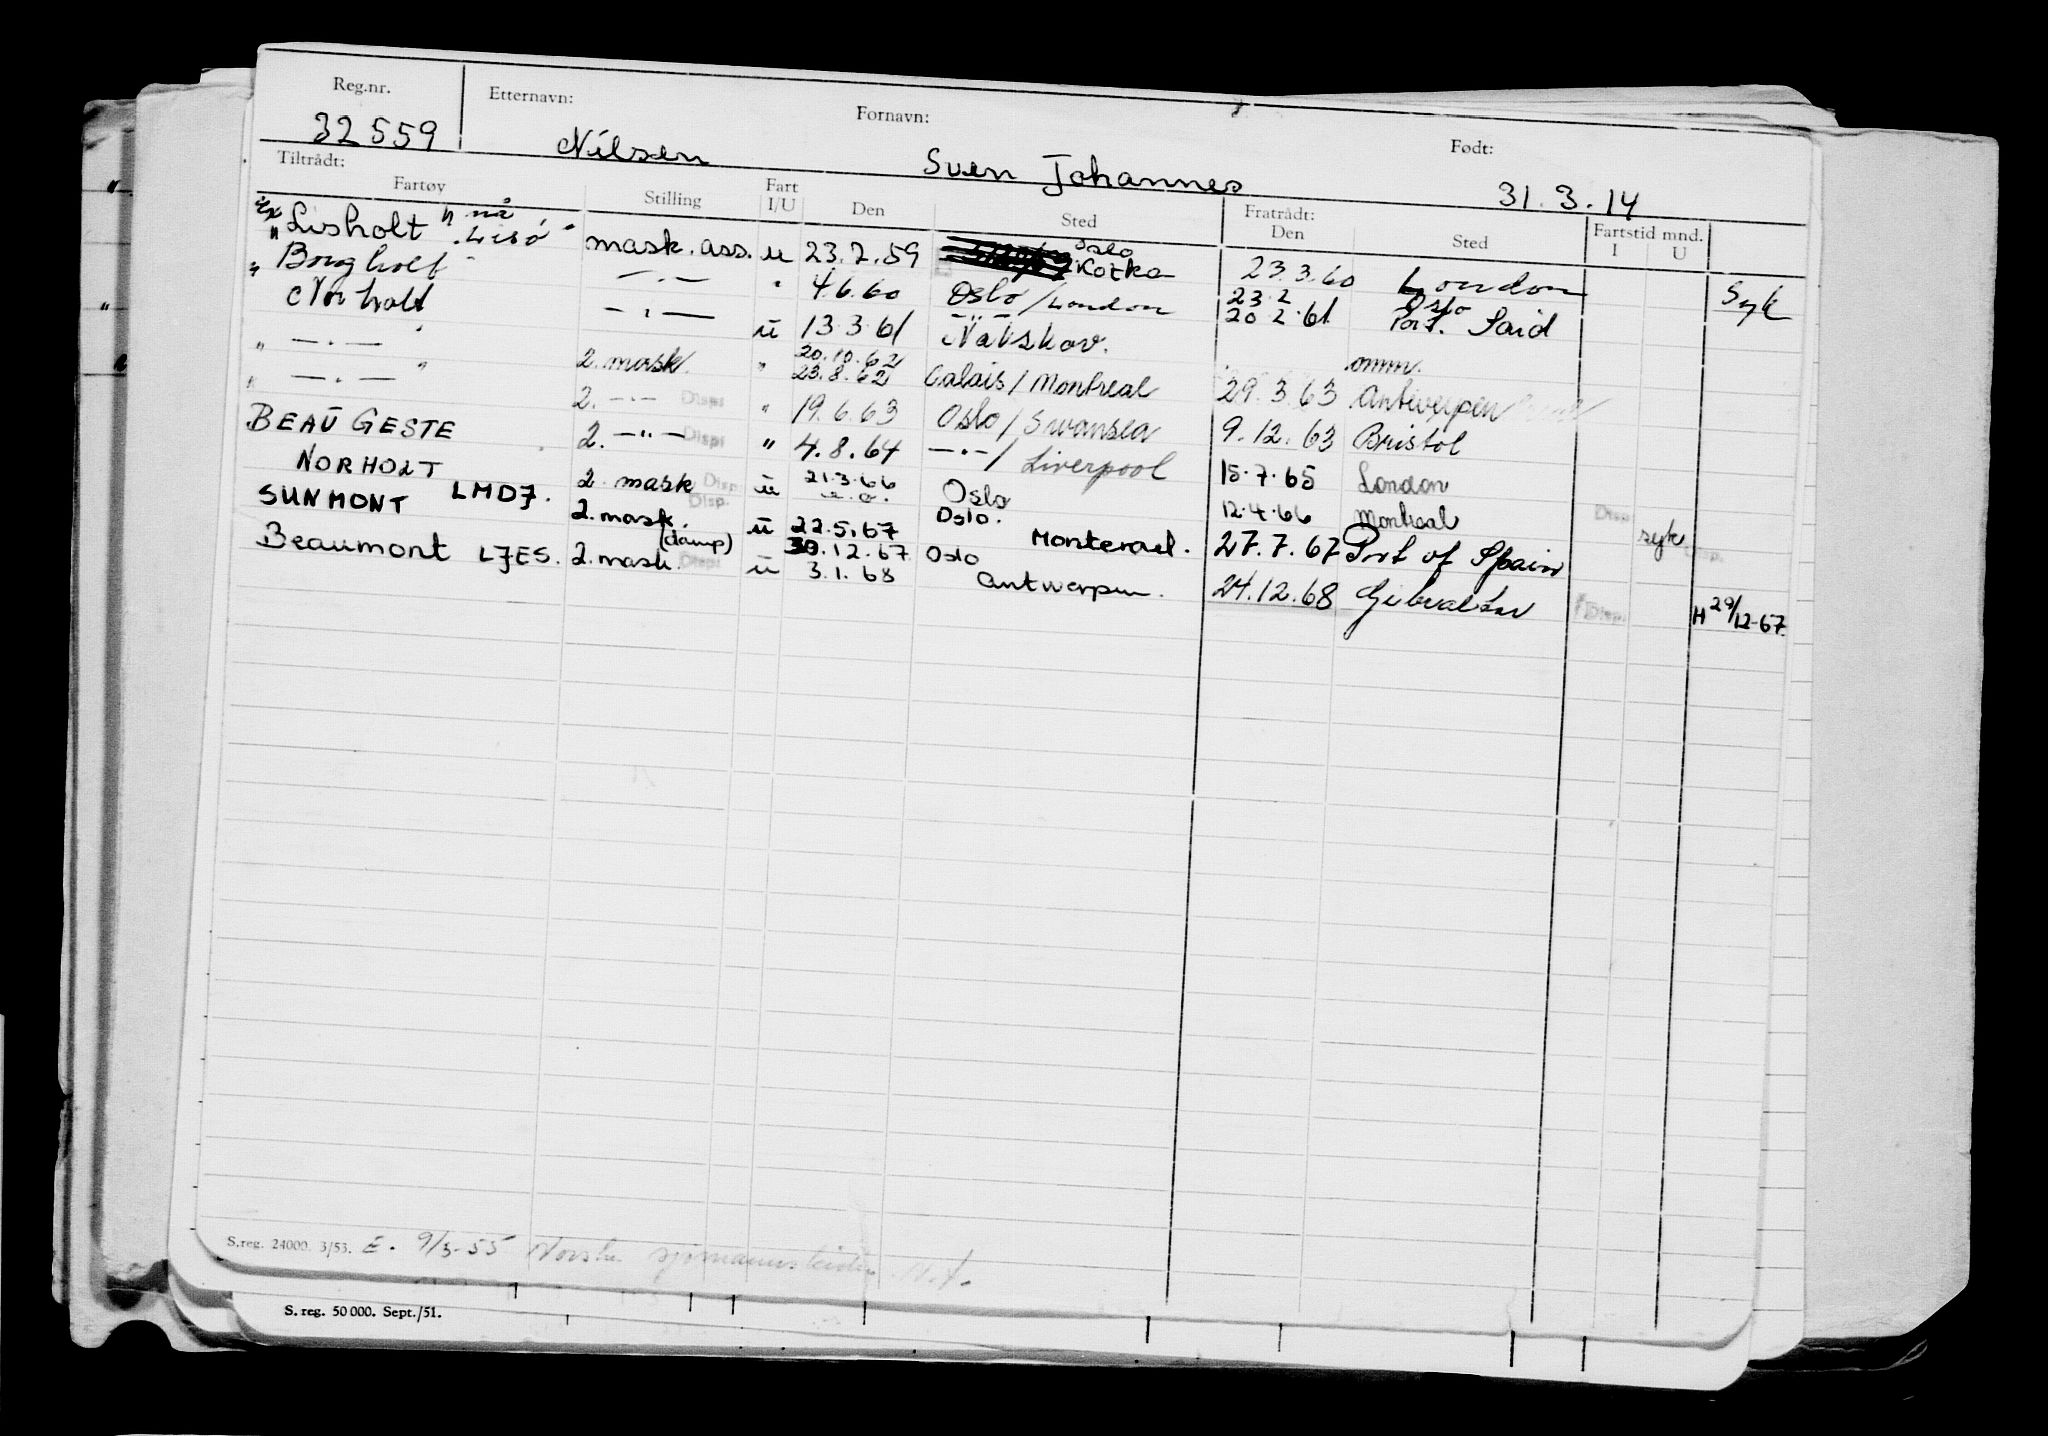 Reg.nr. Etternavn: Fornavn: Født:
32559 Nilsen Sven Johannes 31.3.14
Tiltrådt: Fratrådt: Fartstid mnd.
Fartøy Stilling Fart I/U Den Sted Den Sted I U
"ex Lisholt" nå "Lisø" mask. ass. u 23.7.59 Oslo Kotka 23.3.60 London Syk
" Borgholt —.— " 4.6.60 Oslo/London 23.2 20.2.61 Oslo Port Said
" Norholt —.— u 13.3.61 Nakskov. omm.
" —.— " 2. mask. " 20.10.62 23.8.62 Calais/Montreal 29.3.63 Antwerpen
" —.— 2. —.— Disp " 19.6.63 Oslo/Swansea 9.12.63 Bristol
BEAU GESTE 2. —"— Disp " 4.8.64 —.—/Liverpool 15.7.65 London
NORHOLT 2. mask Disp. u 21.3.66 Oslo 12.4.66 Montreal Disp. syk
SUNMONT LMDJ. 2. mask. (damp) Disp. u 22.5.67 Oslo. Monteral. 27.7.67 Port of Spain Disp.
Beaumont LJES. 2. mask. Disp u 30.12.67 3.1.68 Oslo Antwerpen. 24.12.68 Gibraltar Disp. H 29/12-67.
S.reg. 24000. 3/53. E. 9/3-55 Norske
S. reg. 50 000. Sept./51.